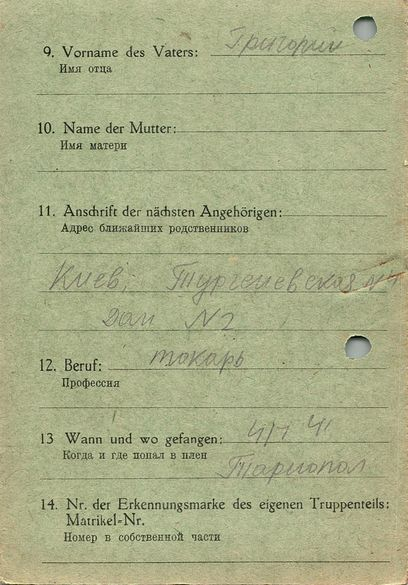 9. Vorname des Vaters: Григорий
Имя отца
10. Name der Mutter:
Имя матери
11. Anschrift der nächsten Angehörigen:
Адрес ближайших родственников
Киев, Тургеневская №
Дом №2
12. Beruf: токарь
Профессия
13 Wann und wo gefangen: 41
Когда и где попал в плен
Тарнопол
14. Nr. der Erkennungsmarke des eigenen Truppenteils:
Matrikel-Nr.
Номер в собственной части